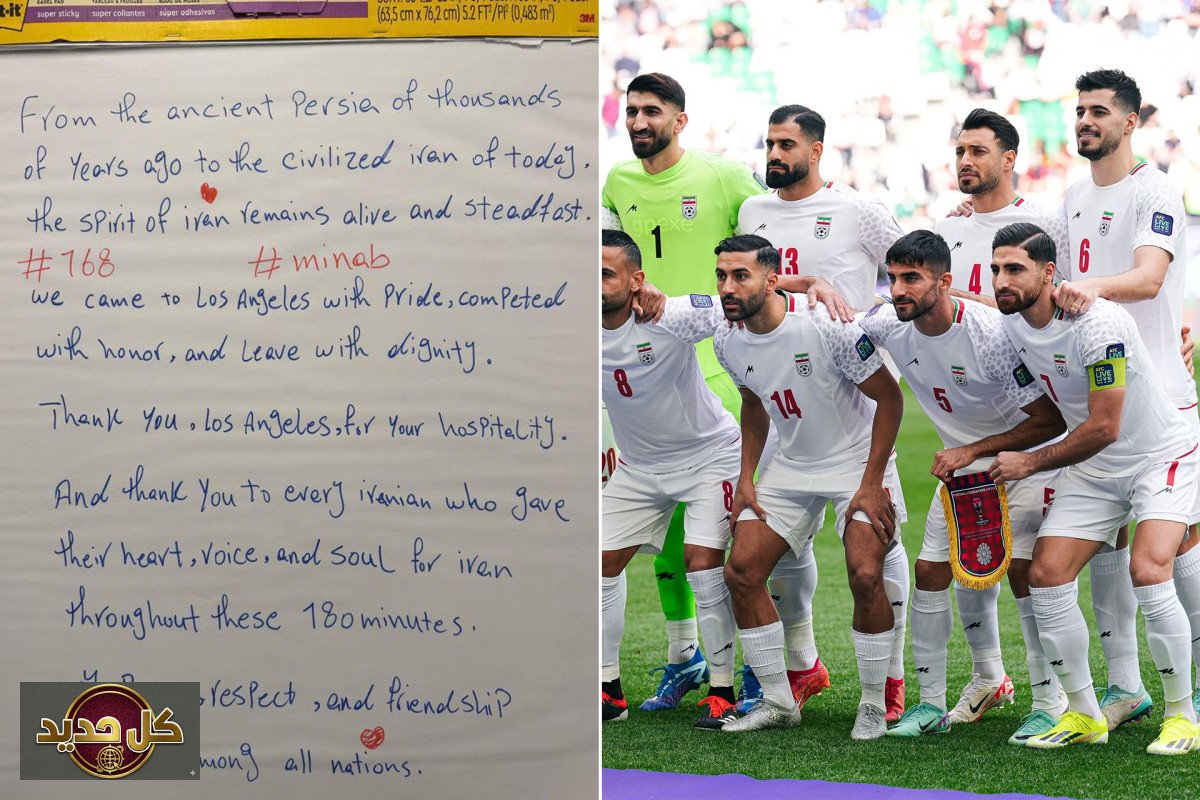 t-it
super sticky
super collantes
súper adhesivos
(63,5 cm x 76,2 cm) 5.2 FT²/PI² (0,483 m²)
3M
From the ancient Persia of thousands
of years ago to the civilized iran of today.
the spirit of iran remains alive and steadfast.
#168 #minab
we came to Los Angeles with Pride, competed
with honor, and Leave with dignity.
Thank you, Los Angeles, for your hospitality.
And thank you to every iranian who gave
their heart, voice, and soul for iran
throughout these 180 minutes.
respect, and friendship
among all nations.
كل جديد
1
13
4
6
8
14
5
7
AFC
LIVE
8
5
1
20